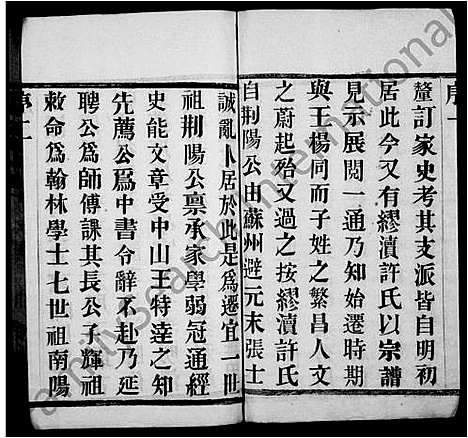 序一
釐訂家史考其支派皆自明初
居此今又有繆瀆許氏以宗譜
見示展閱一通乃知始遷時期
與王楊同而子姓之繁昌人文
之蔚起殆又過之按繆瀆許氏
自荆陽公由蘇州避元末張士
誠亂卜居於此是爲遷宜一世
祖荆陽公稟承家學弱冠通經
史能文章受中山王特達之知
先薦公爲中書令辭不赴乃延
聘公爲師傅課其長公子輝祖
敕命爲翰林學士七世祖南陽
序二
familysearch international